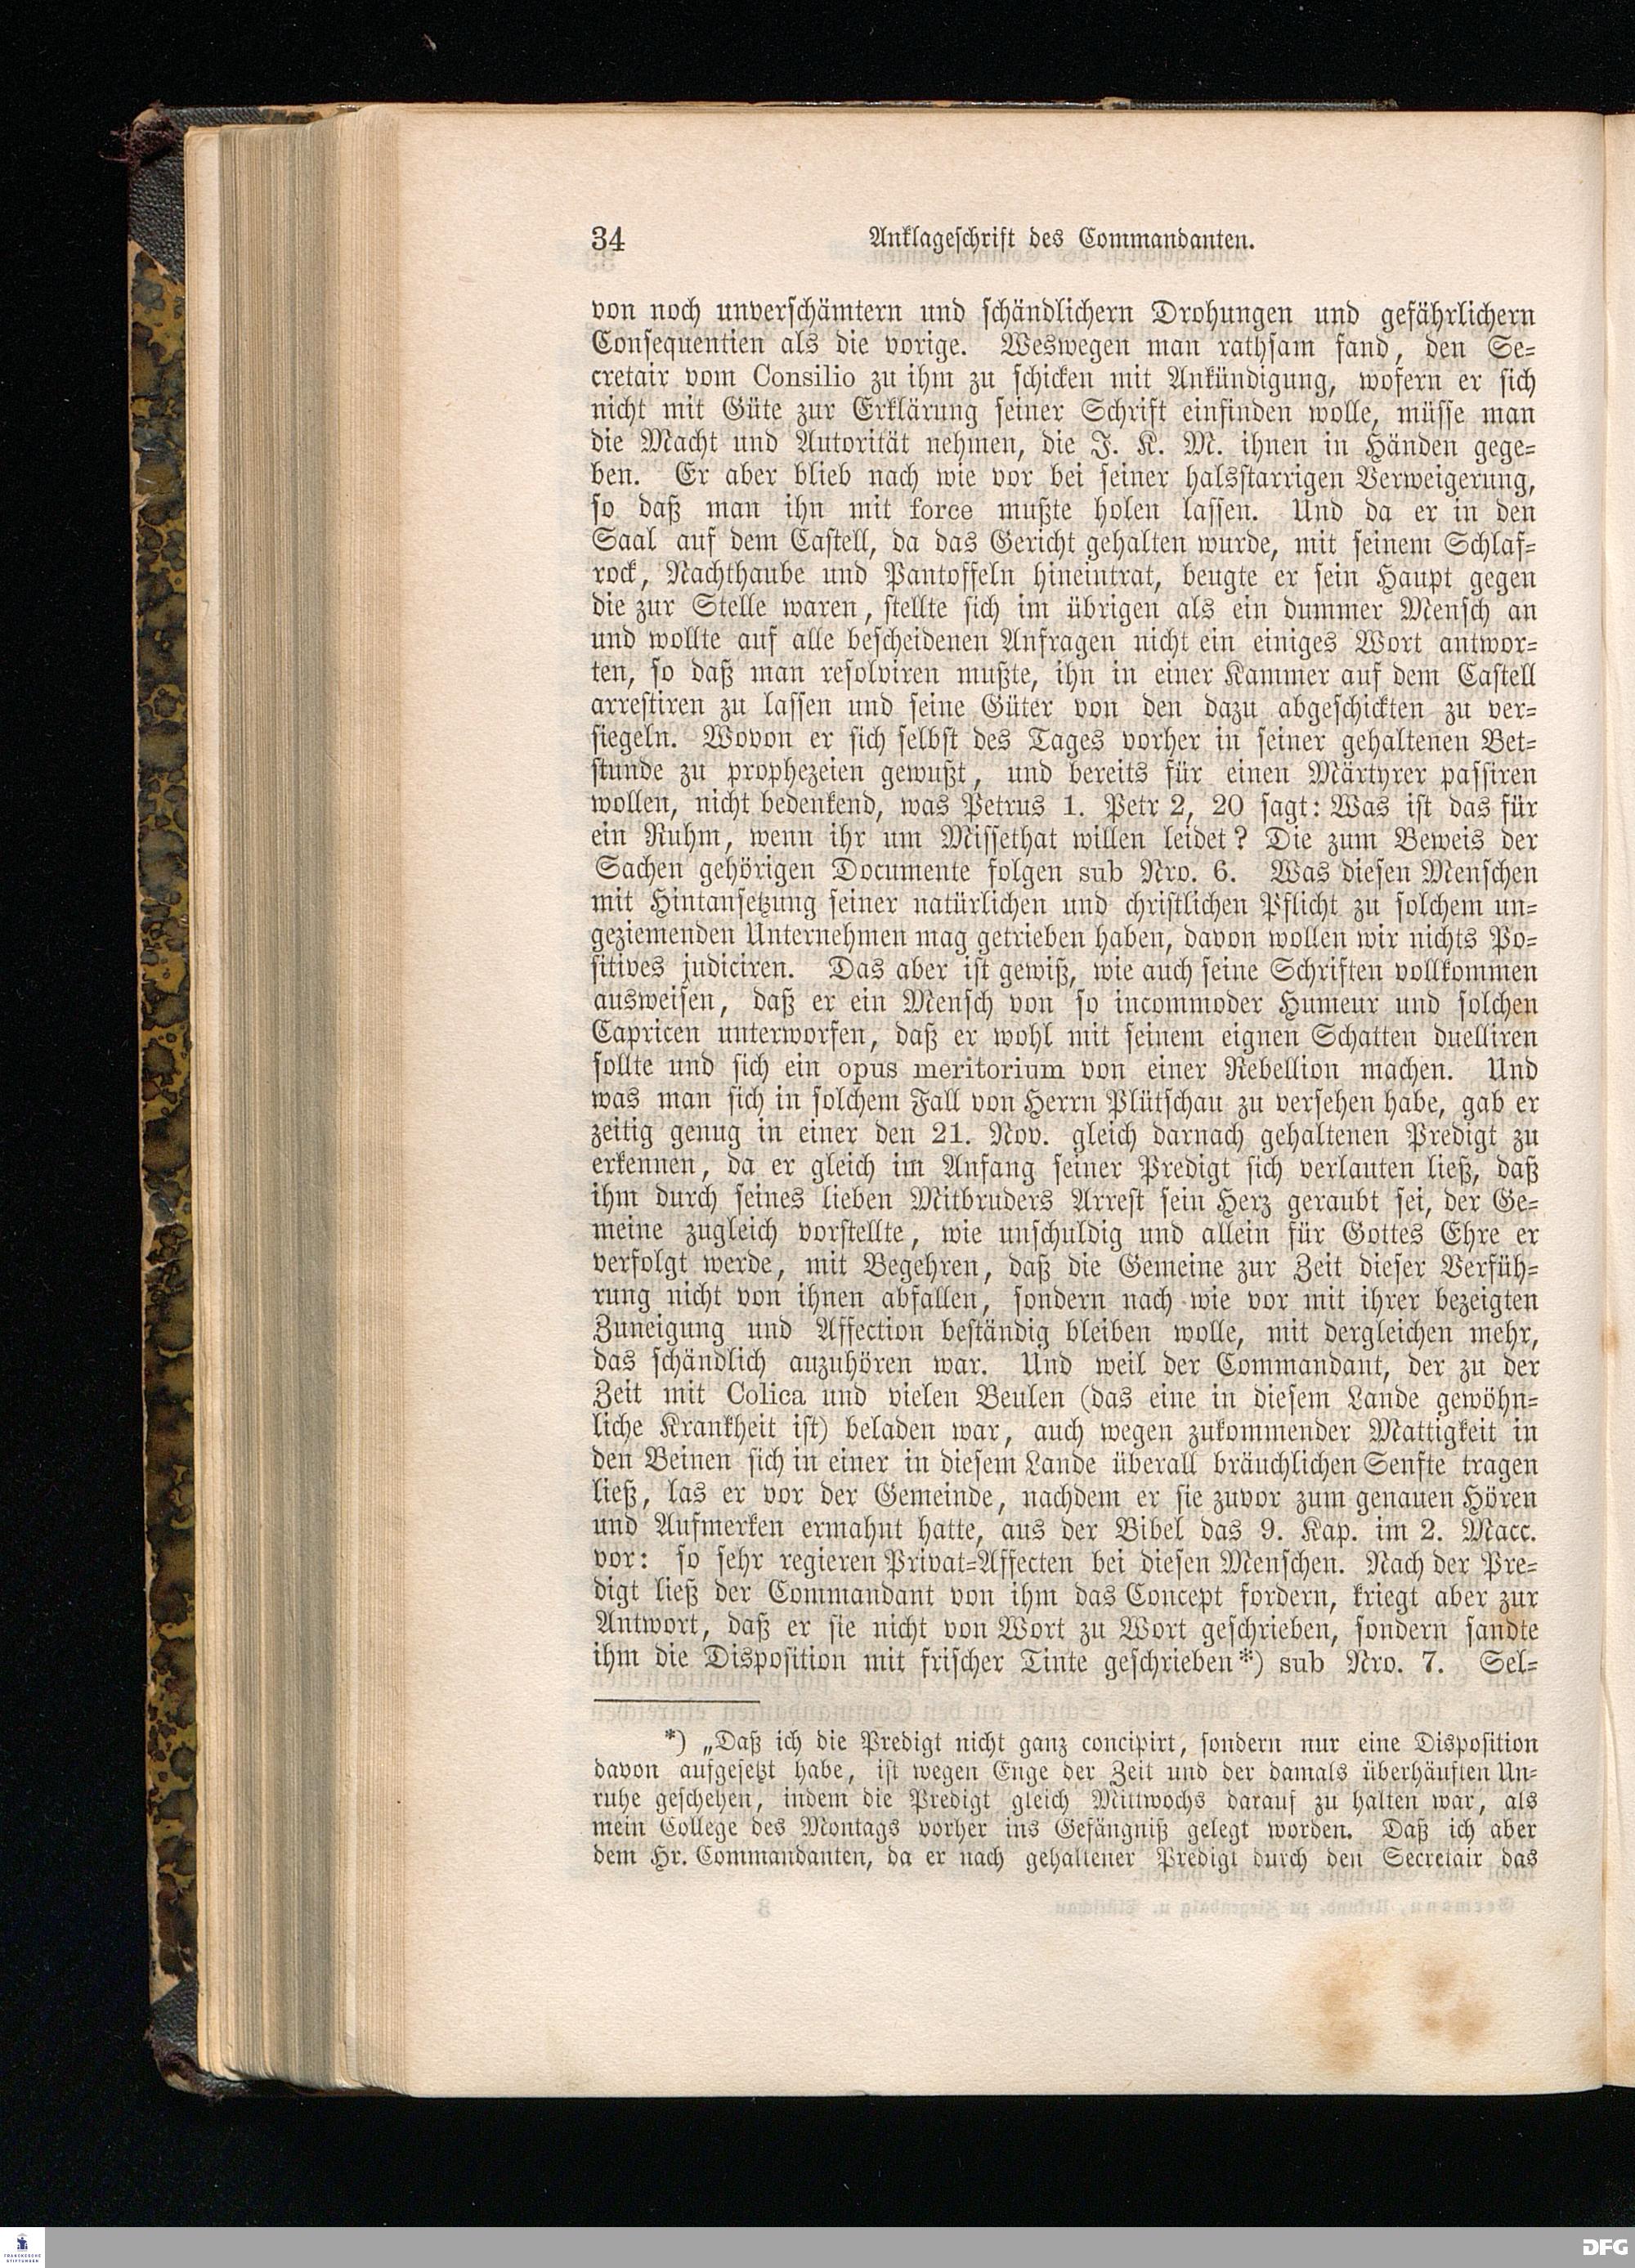 34 Anklageschrift des Commandanten.
von noch unverschämtern und schändlichern Drohungen und gefährlichern
Consequentien als die vorige. Weswegen man rathsam fand, den Se-
cretair vom Consilio zu ihm zu schicken mit Ankündigung, wofern er sich
nicht mit Güte zur Erklärung seiner Schrift einfinden wolle, müsse man
die Macht und Autorität nehmen, die J. K. M. ihnen in Händen gege-
ben. Er aber blieb nach wie vor bei seiner halsstarrigen Verweigerung,
so daß man ihn mit force mußte holen lassen. Und da er in den
Saal auf dem Castell, da das Gericht gehalten wurde, mit seinem Schlaf-
rock, Nachthaube und Pantoffeln hineintrat, beugte er sein Haupt gegen
die zur Stelle waren, stellte sich im übrigen als ein dummer Mensch an
und wollte auf alle bescheidenen Anfragen nicht ein einiges Wort antwor-
ten, so daß man resolviren mußte, ihn in einer Kammer auf dem Castell
arrestiren zu lassen und seine Güter von den dazu abgeschickten zu ver-
siegeln. Wovon er sich selbst des Tages vorher in seiner gehaltenen Bet-
stunde zu prophezeien gewußt, und bereits für einen Märtyrer passiren
wollen, nicht bedenkend, was Petrus 1. Petr 2, 20 sagt: Was ist das für
ein Ruhm, wenn ihr um Missethat willen leidet? Die zum Beweis der
Sachen gehörigen Documente folgen sub Nro. 6. Was diesen Menschen
mit Hintansetzung seiner natürlichen und christlichen Pflicht zu solchem un-
geziemenden Unternehmen mag getrieben haben, davon wollen wir nichts Po-
sitives judiciren. Das aber ist gewiß, wie auch seine Schriften vollkommen
ausweisen, daß er ein Mensch von so incommoder Humeur und solchen
Capricen unterworfen, daß er wohl mit seinem eignen Schatten duelliren
sollte und sich ein opus meritorium von einer Rebellion machen. Und
was man sich in solchem Fall von Herrn Plütschau zu versehen habe, gab er
zeitig genug in einer den 21. Nov. gleich darnach gehaltenen Predigt zu
erkennen, da er gleich im Anfang seiner Predigt sich verlauten ließ, daß
ihm durch seines lieben Mitbruders Arrest sein Herz geraubt sei, der Ge-
meine zugleich vorstellte, wie unschuldig und allein für Gottes Ehre er
verfolgt werde, mit Begehren, daß die Gemeine zur Zeit dieser Verfüh-
rung nicht von ihnen abfallen, sondern nach wie vor mit ihrer bezeigten
Zuneigung und Affection beständig bleiben wolle, mit dergleichen mehr,
das schändlich anzuhören war. Und weil der Commandant, der zu der
Zeit mit Colica und vielen Beulen (das eine in diesem Lande gewöhn-
liche Krankheit ist) beladen war, auch wegen zukommender Mattigkeit in
den Beinen sich in einer in diesem Lande überall bräuchlichen Senfte tragen
ließ, las er vor der Gemeinde, nachdem er sie zuvor zum genauen Hören
und Aufmerken ermahnt hatte, aus der Bibel das 9. Kap. im 2. Macc.
vor: so sehr regieren Privat-Affecten bei diesen Menschen. Nach der Pre-
digt ließ der Commandant von ihm das Concept fordern, kriegt aber zur
Antwort, daß er sie nicht von Wort zu Wort geschrieben, sondern sandte
ihm die Disposition mit frischer Tinte geschrieben*) sub Nro. 7. Sel-
*) „Daß ich die Predigt nicht ganz concipirt, sondern nur eine Disposition
davon aufgesetzt habe, ist wegen Enge der Zeit und der damals überhäuften Un-
ruhe geschehen, indem die Predigt gleich Mittwochs darauf zu halten war, als
mein College des Montags vorher ins Gefängniß gelegt worden. Daß ich aber
dem Hr. Commandanten, da er nach gehaltener Predigt durch den Secretair das
FRANCKESCHE
STIFTUNGEN
DFG